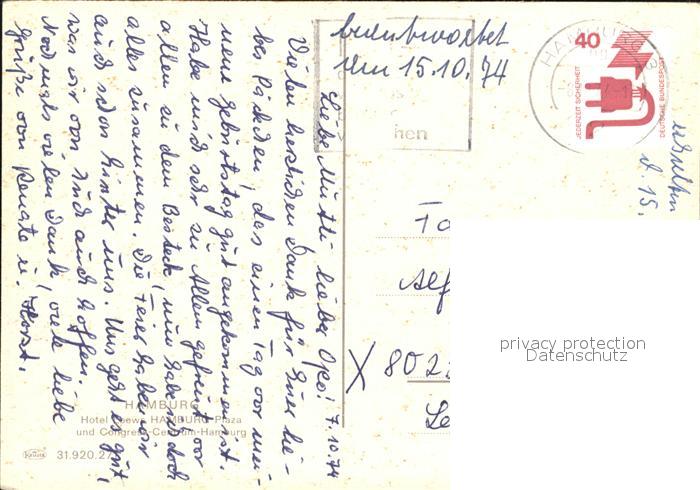 beantwortet
den 15.10.74
HAMBURG
40
JEDERZEIT SICHERHEIT
DEUTSCHE BUNDESPOST
hen
d. 15.
7.10.74
Liebe Mutti, lieber Opa!
Vielen herzlichen Dank für Euer lie-
bes Päckchen, das einen Tag vor mei-
nem Geburtstag gut angekommen ist.
Habe mich sehr zu Allem gefreut, vor
allem zu dem Besteck, nun habe ich doch
alles zusammen. Die Feier haben wir
auch schon hinter uns. Uns geht es gut,
was wir von Euch auch hoffen.
Nochmals vielen Dank, viele liebe
Grüße von Renate u. Horst.
Alf
X 802
HAMBURG
Hotel Loews HAMBURG Plaza
und Congress-Centrum-Hamburg
Krüger 31.920.2
privacy protection
Datenschutz